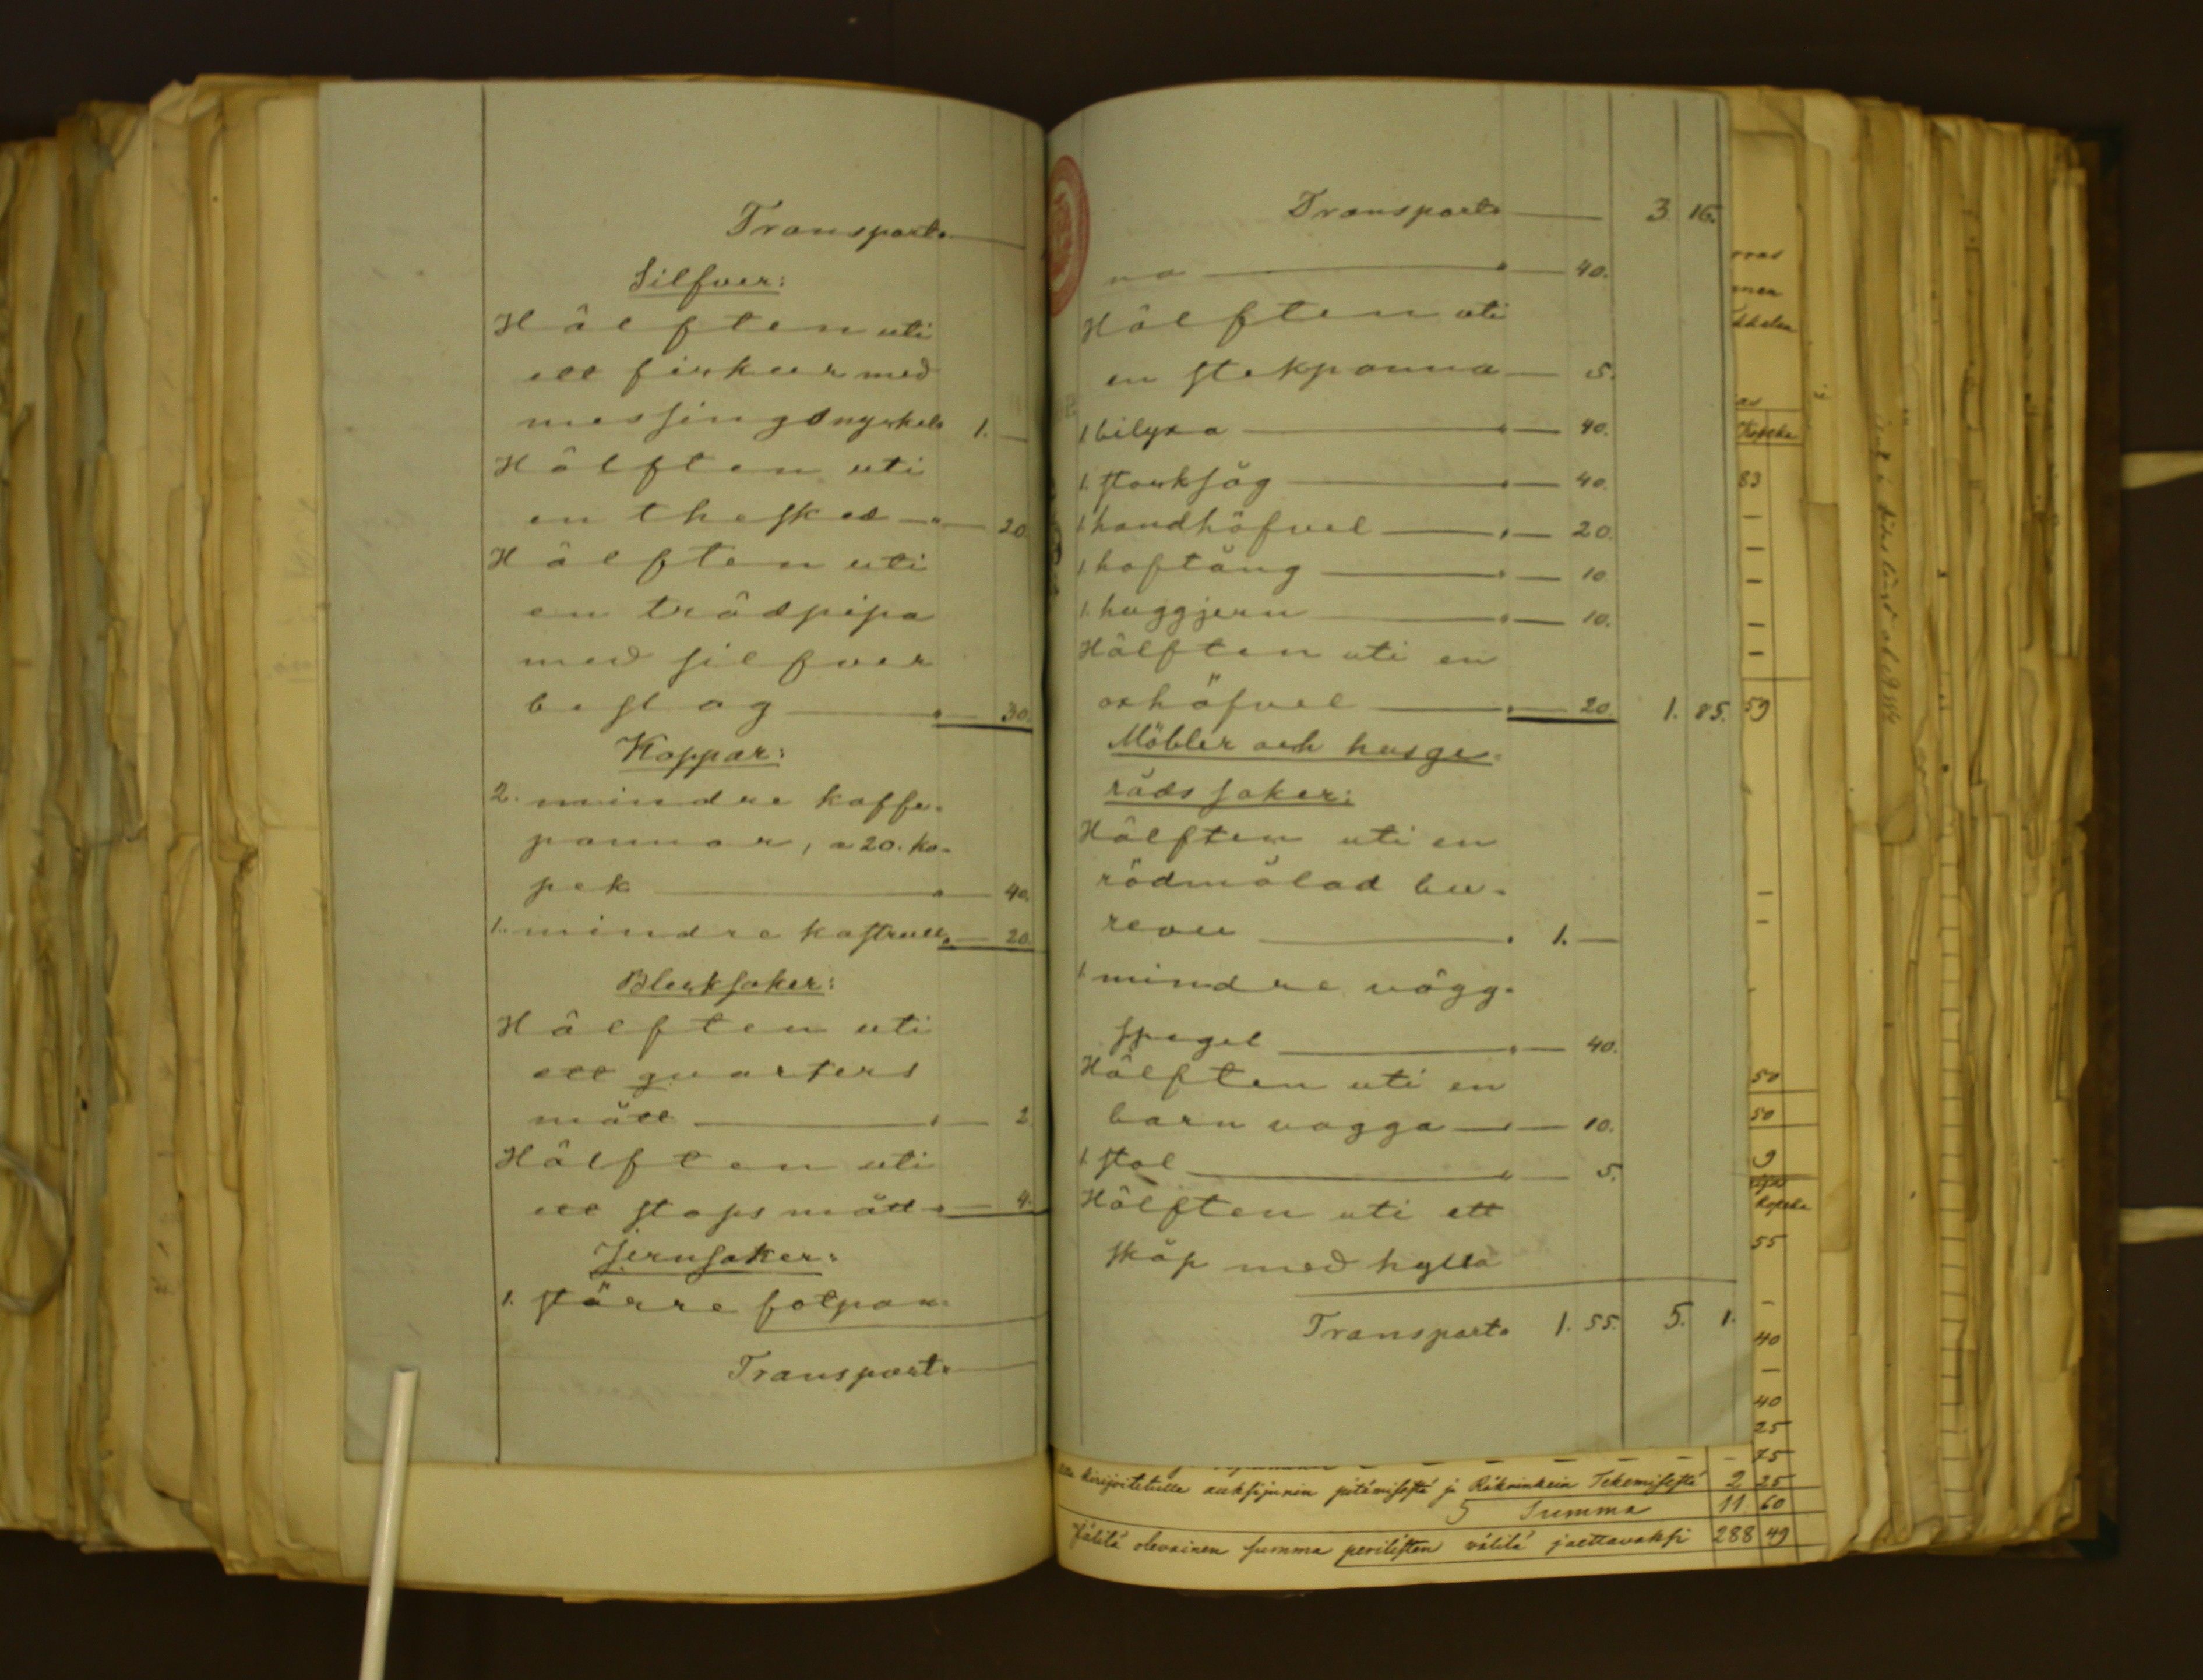 Transport.
Silfver:
Hälften uti
ett fickur med
messingsnyckel 1. —
Hälften uti
en thesked " — 20
Hälften uti
en trädpipa
med silfver
beslag " — 30.
Koppar:
2. mindre kaffe-
pannor, a 20. ko-
pek " — 40.
1. mindre kastrull " — 20.
Blecksaker:
Hälften uti
ett quarters
mått " — 2.
Hälften uti
ett stops mått " — 4.
Jernsaker:
1. större fotpan-
Transport.
Transport. 3. 16.
na " — 40.
Hälften uti
en stekpanna — 5.
1 bilyxa " — 40.
1. stocksåg " — 40.
1 handhöfvel " — 20.
1 hoftång " — 10.
1. huggjern " — 10.
Hälften uti en
oxhöfvel " — 20. 1. 85.
Möbler och husge-
råds saker:
Hälften uti en
rödmålad bu-
reau " 1. —
1 mindre vägg-
spegel " — 40.
Hälften uti en
barn vagga " — 10.
1 stol " — 5.
Hälften uti ett
skåp med hylla
Transport. 1. 55. 5. 1.
Kopeka
83
59
50
50
9
Kopeka
55
40
40
25
75
kirjoitetulle auksjunin pitämisestä ja Räkninkein Tekemisestä 2 25
Summa 11 60
Jälilä olevainen summa perilisten välilä jaettavaksi 288 49